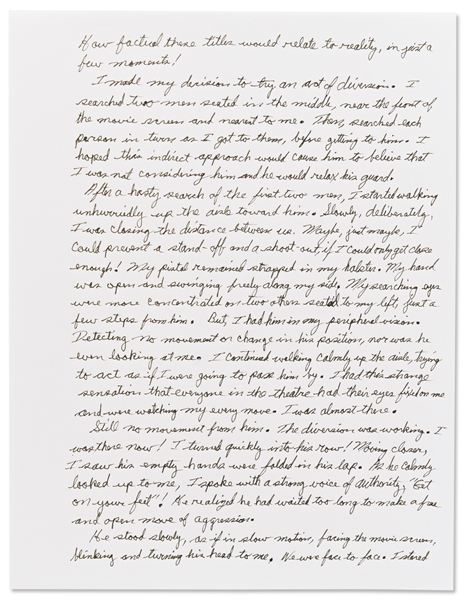 How factual these titles would relate to reality, in just a
few moments!
I made my decision to try an art of diversion. I
searched two men seated in the middle, near the front of,
the movie screen and nearest to me. Then, searched each
person in turn as I got to them, before getting to him. I
hoped this indirect approach would cause him to believe that
I was not considering him and he would relax his guard.
After a hasty search of the first two men, I started walking
unhurriedly up the aisle toward him. Slowly, deliberately,
I was closing the distance between us. Maybe, just maybe, I
could prevent a stand-off and a shoot-out, if I could only get close
enough! My pistol remained strapped in my holster. My hand
was open and swinging freely along my side. My searching eyes
were more concentrated on two others seated to my left, just a
few steps from him. But, I had him in my peripheral vision.
Detecting no movement or change in his position, nor was he
even looking at me. I continued walking calmly up the aisle, trying
to act as if I were going to pass him by. I had this strange
sensation that everyone in the theatre had their eyes fixed on me
and were watching my every move. I was almost there.
Still no movement from him. The diversion was working. I
was there now! I turned quickly into his row! Moving closer,
I saw his empty hands were folded in his lap. As he calmly
looked up to me, I spoke with a strong voice of authority, "Get
on your feet"! He realized he had waited too long to make a free
and open move of aggression.
He stood slowly, as if in slow motion, facing the movie screen,
blinking and turning his head to me. We were face to face. I stared